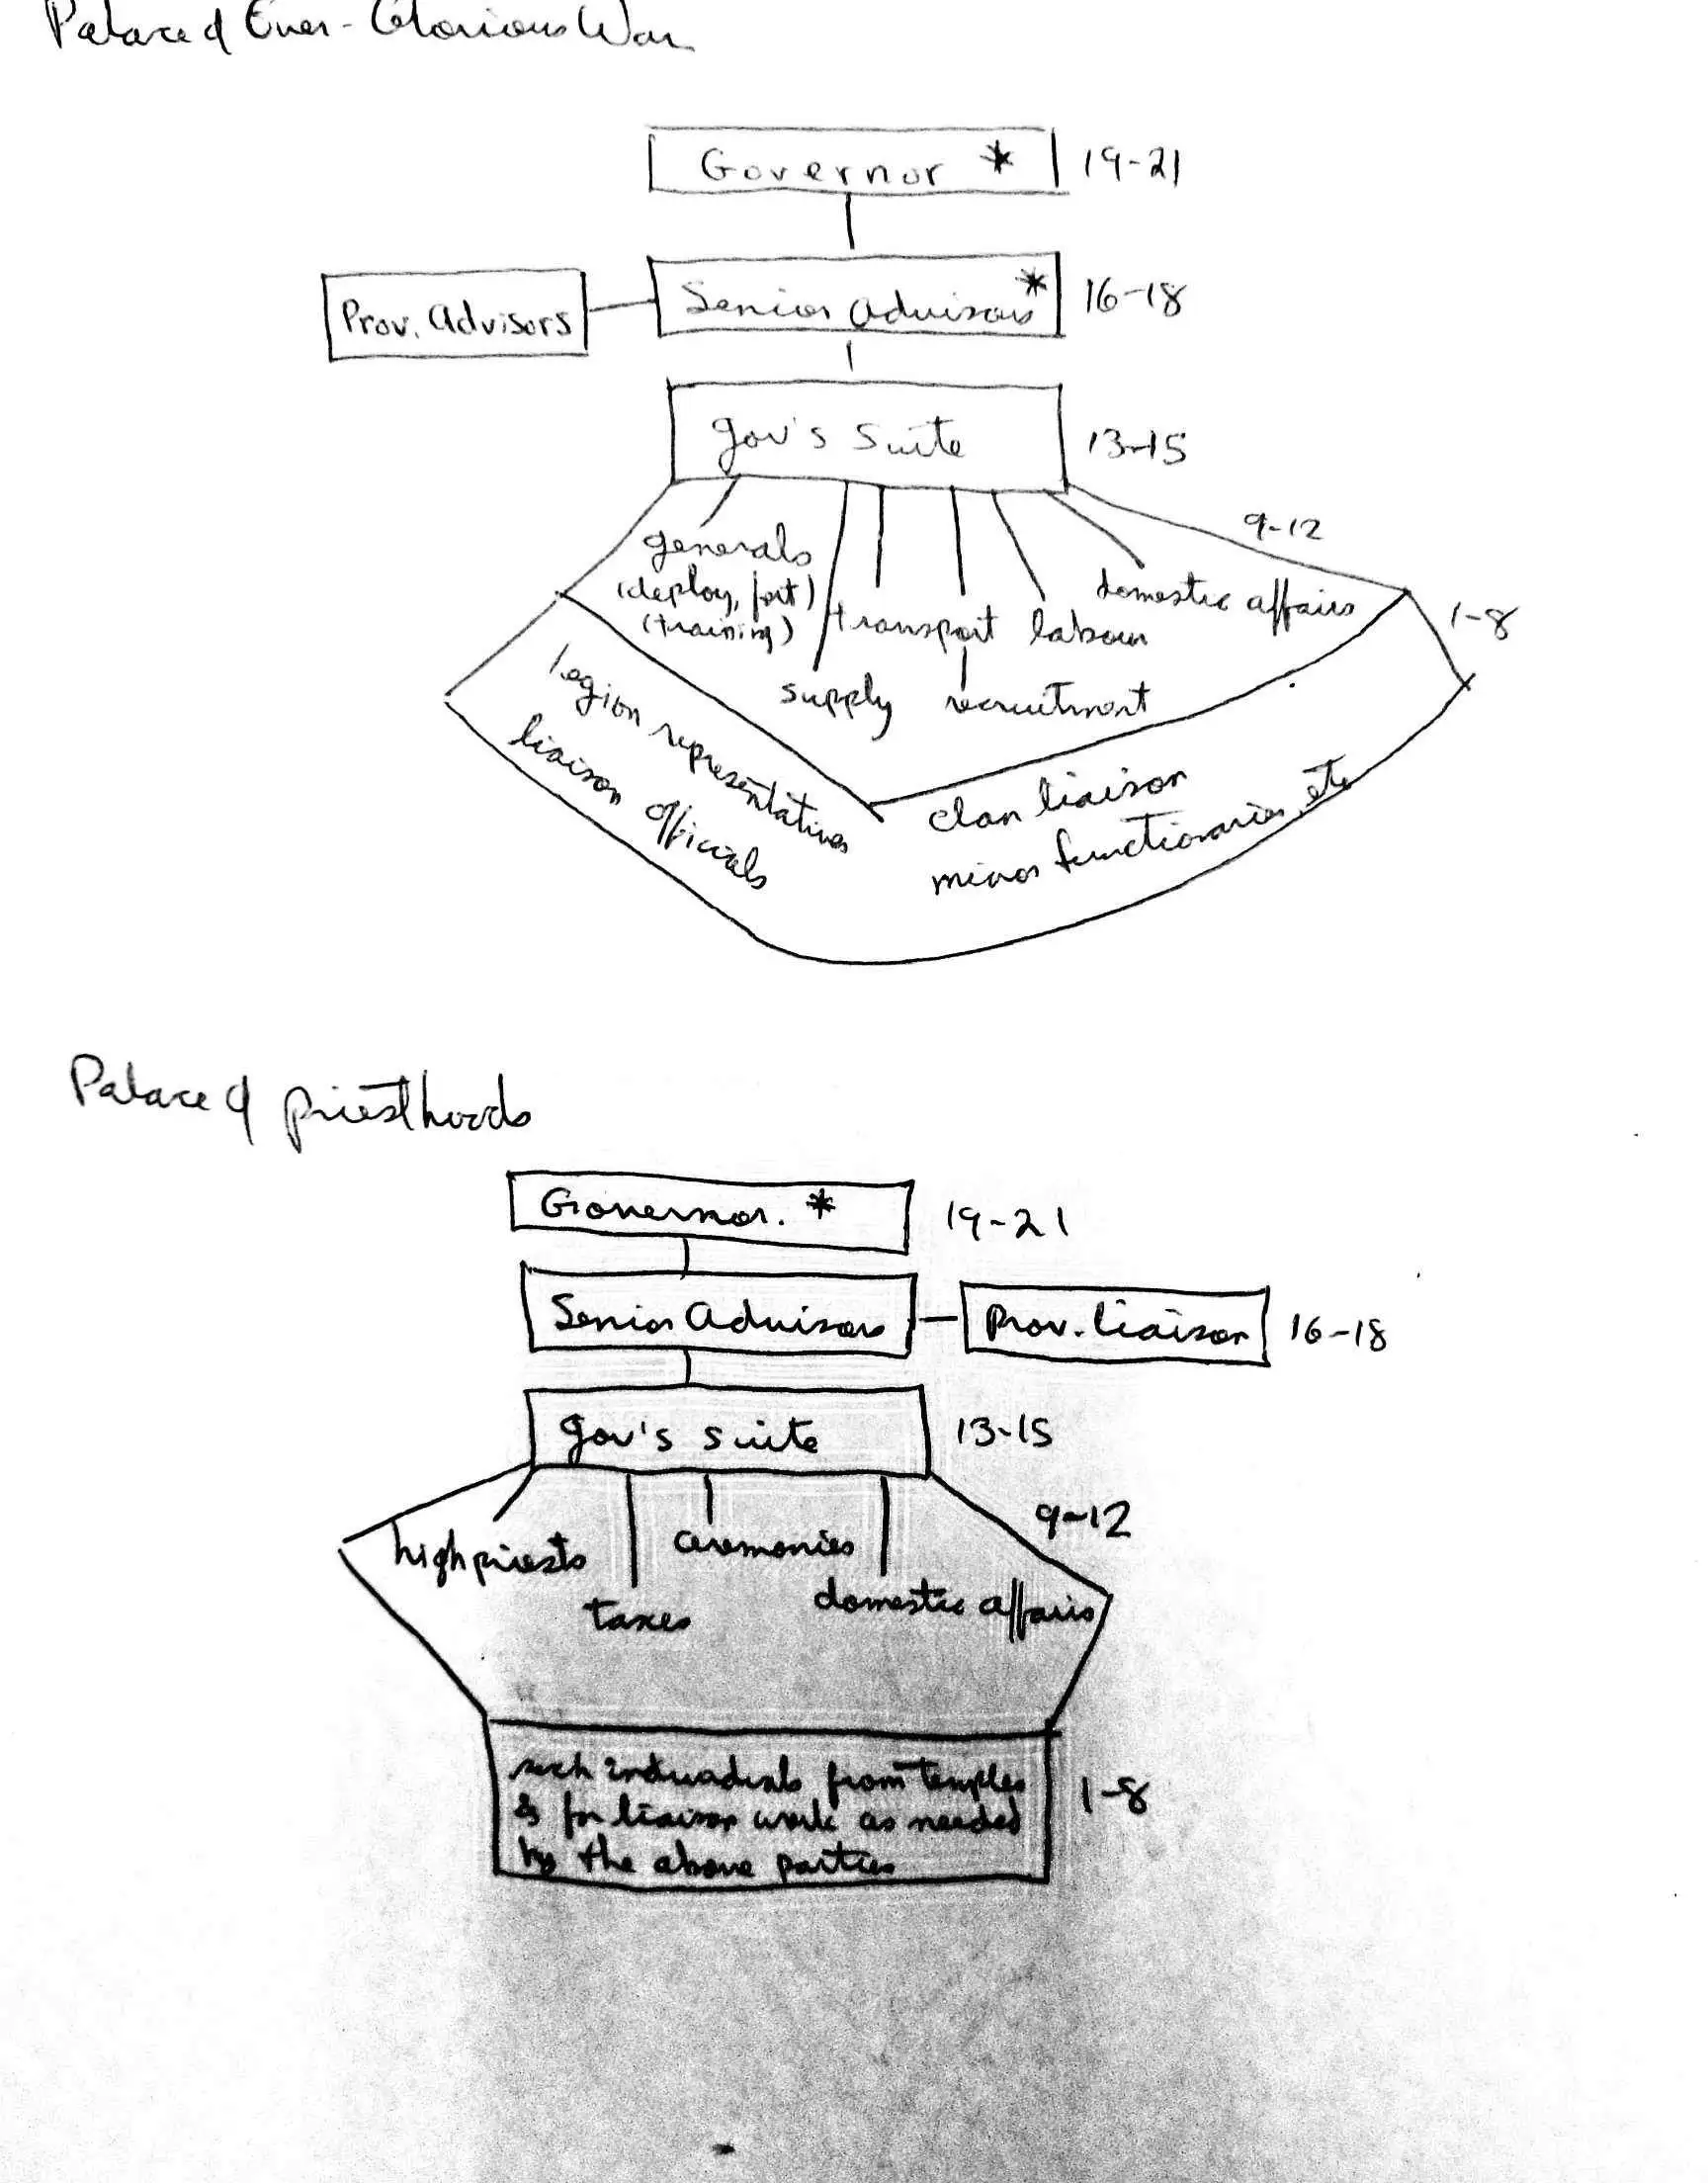 Palace of Ever-Glorious War
Governor *
19-21
Prov. Advisors
Senior Advisors *
16-18
Gov's Suite
13-15
9-12
generals
(deploy, fort)
(training)
transport
labour
domestic affairs
1-8
supply
recruitment
legion representatives
liaison officials
clan liaison
minor functionaries, etc
Palace of priesthoods
Governor. *
19-21
Senior Advisors
Prov. liaison
16-18
Gov's suite
13-15
9-12
high priests
ceremonies
taxes
domestic affairs
such individuals from temples
& for liaison work as needed
by the above parties
1-8